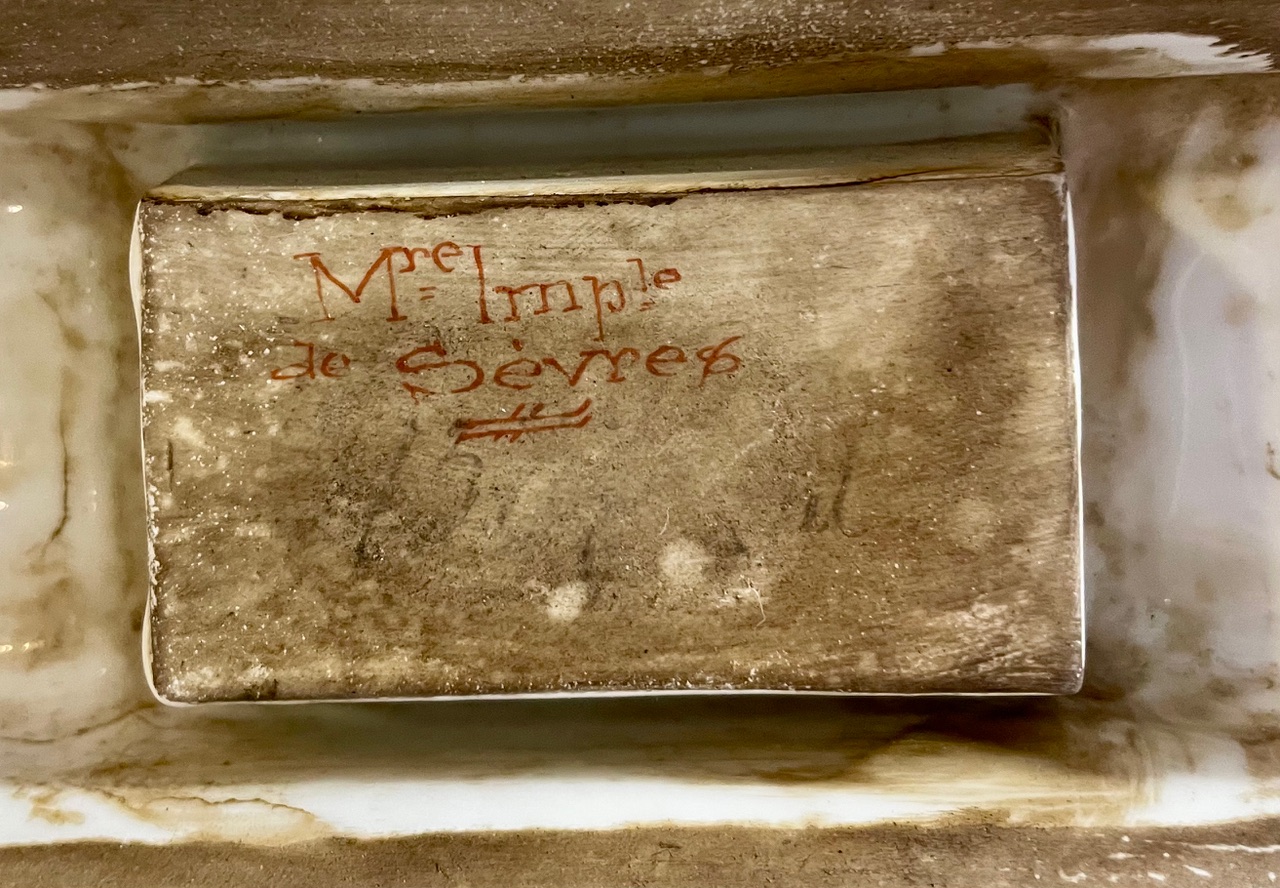 Mre Imple
de Sèvres